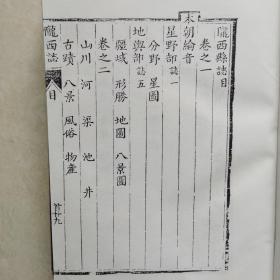 隴西縣誌目
卷之一
本朝綸音
星野部誌一
分野 星圖
地輿部誌五
疆域 形勝 地圖 八景圖
卷之二
山川 河 梁 池 井
古蹟 八景 風俗 物產
隴西誌 目